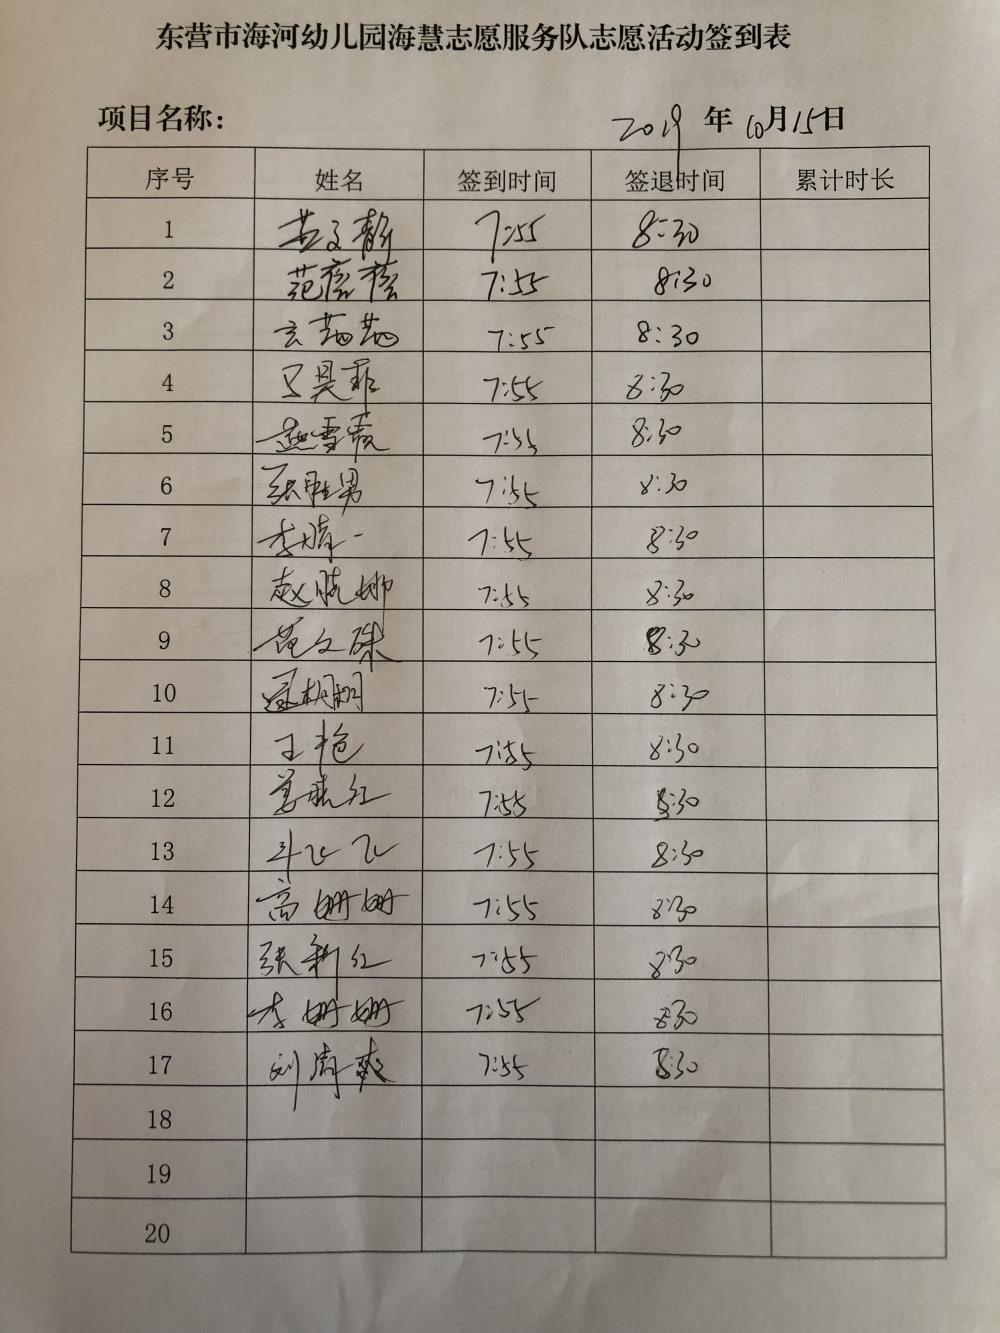 东营市海河幼儿园海慧志愿服务队志愿活动签到表
项目名称： 2019 年 10 月 15 日
序号 姓名 签到时间 签退时间 累计时长
1 文静 7:55 8:30
2 范蓓蓓 7:55 8:30
3 7:55 8:30
4 7:55 8:30
5 7:55 8:30
6 张胜男 7:55 8:30
7 李晴一 7:55 8:30
8 赵晓娜 7:55 8:30
9 范文 7:55 8:30
10 7:55 8:30
11 王艳 7:55 8:30
12 红 7:55 8:30
13 飞飞 7:55 8:30
14 高姗姗 7:55 8:30
15 张新红 7:55 8:30
16 李姗姗 7:55 8:30
17 刘 爽 7:55 8:30
18
19
20